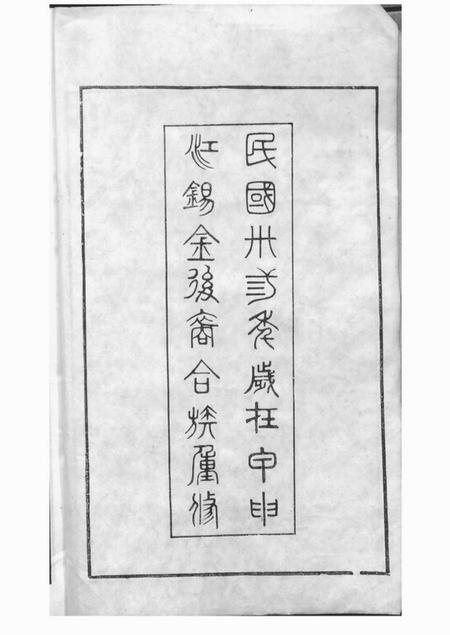 民國卅三秊歲在甲申
江錫金後裔合族重修